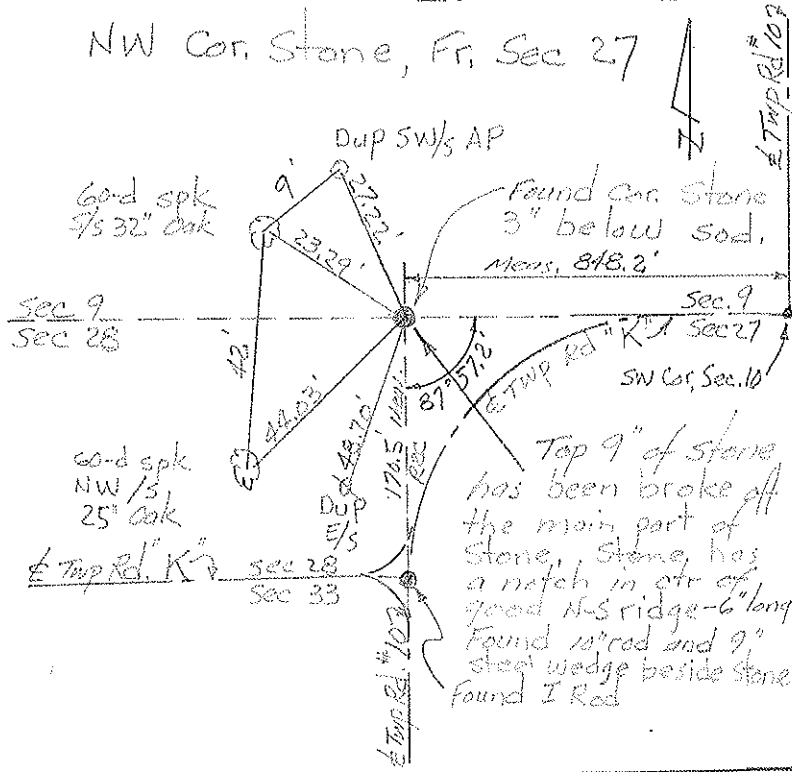 NW Cor. Stone, Fr. Sec 27
℄ Twp Rd #107
Dup SW/s AP
60-d spk
S/s 32" Oak
9'
27.22'
23.29'
Found Cor. Stone
3" below sod.
Meas. 848.2'
Sec 9
Sec 28
Sec. 9
Sec 27
SW Cor, Sec. 10
℄ Twp Rd "K"
87° 57.2'
42'
44.03'
48.70'
176.5' Meas.
Rec
60-d spk
NW/s
25" Oak
Dup
E/s
℄ Twp Rd. "K"
Sec 28
Sec 33
℄ Twp Rd. #107
Top 9" of stone
has been broke off
the main part of
Stone, Stone has
a notch in ctr of
good N-S ridge-6" long
Found 10" rod and 9"
steel wedge beside stone
Found I Rod